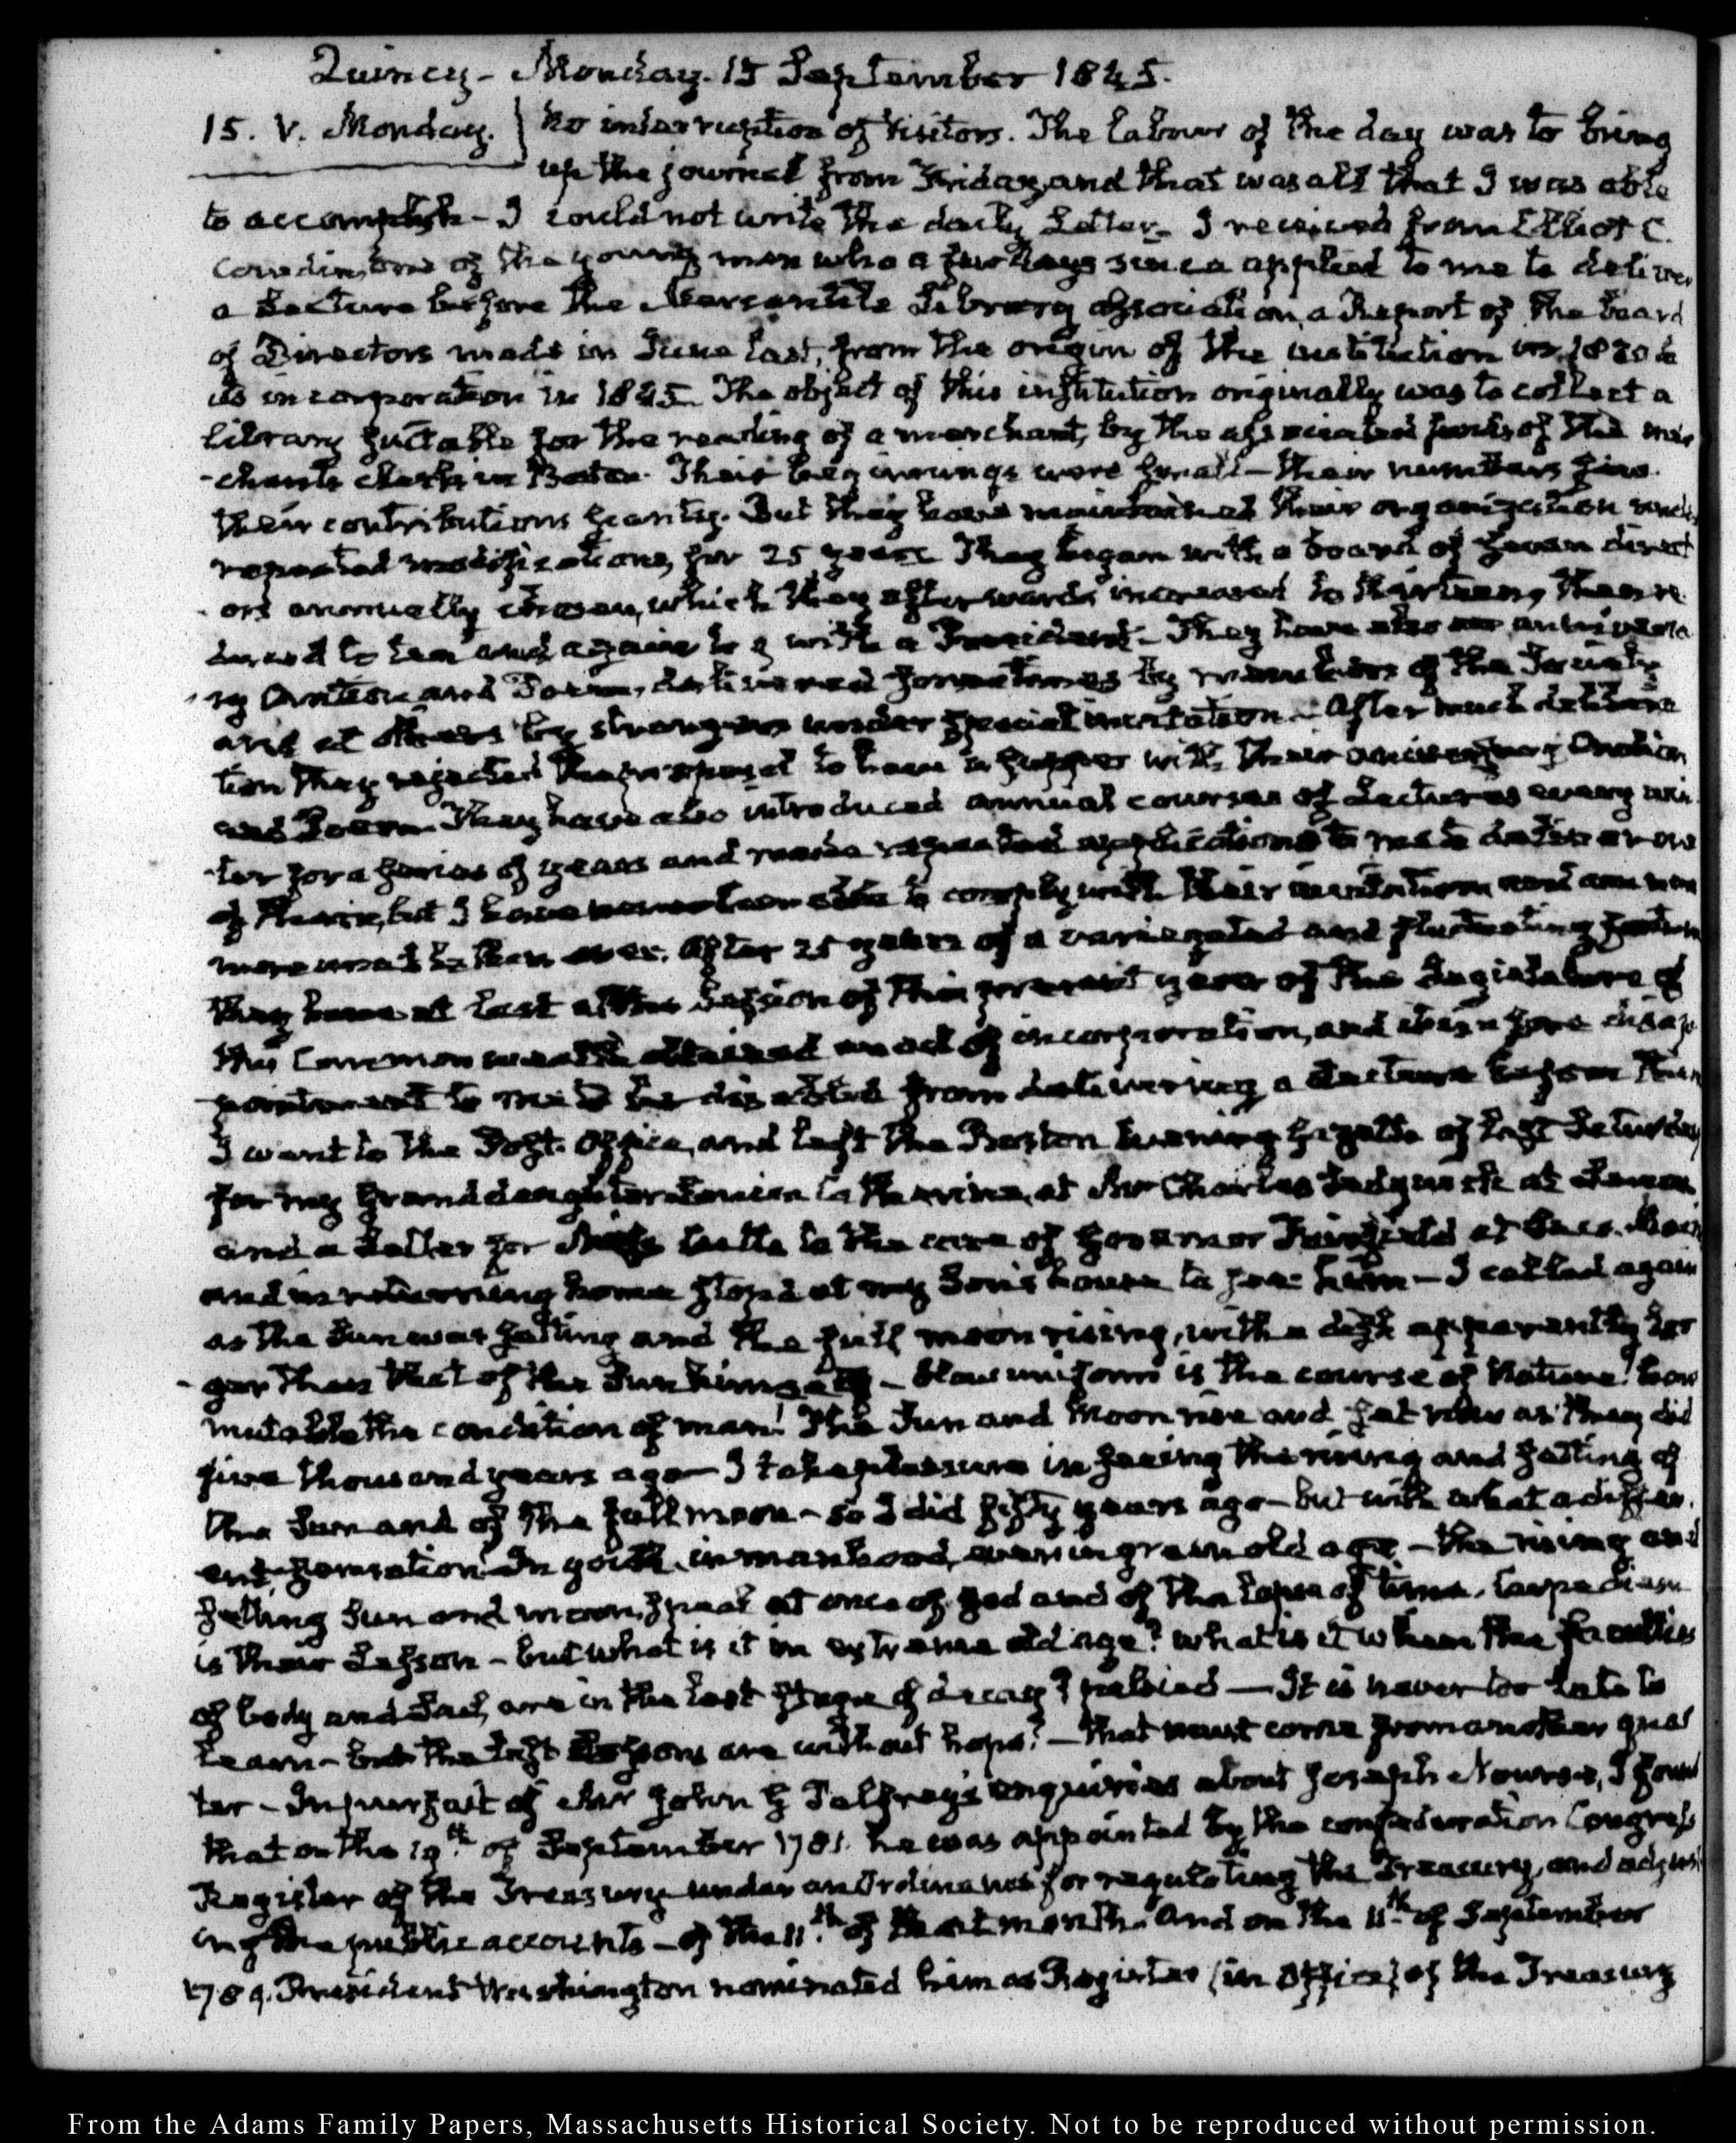 Quincy - Monday. 15 September 1845.
15. V. Monday. } No interruption of visitors. The labour of the day was to bring
up the journal from Friday, and that was all that I was able
to accomplish - I could not write the daily Letter - I received from Elliot C.
Cowdin, one of the young men who a few days since applied to me to deliver
a Lecture before the Mercantile Library association, a Report of the board
of Directors made in June last, from the origin of the institution in 1820 to
its incorporation in 1845. The object of this institution originally was to collect a
library suitable for the reading of a merchant, by the associated funds of the mer
-chants clerks in Boston. Their beginnings were small - their numbers few.
their contributions scanty. But they have maintained their organization under
repeated modifications, for 25 years They began with a board of seven direct
-ors annually chosen, which they afterwards increased to thirteen, then re
duced to ten and again to 9 with a President - They have also an anniversa
ry Oration and Poem, delivered sometimes by members of the Society
and at others by strangers under special invitation. After much delibera
tion they rejected the proposal to have a supper with their anniversary Oration
and Poem. They have also introduced annual courses of Lectures every win
-ter for a series of years and made repeated applications to me to deliver one
of them, but I have never been able to comply with their invitation and am now
more unable than ever. After 25 years of a variegated and fluctuating fortune
they have at last at the Session of this present year of the Legislature of
this Commonwealth obtained an act of incorporation, and it is a sore disap
pointment to me to be disabled from delivering a Lecture before them
I went to the Post-Office, and left the Boston Evening Gazette of last Saturday
for my Granddaughter Louisa Catherine, at Mr Charles Sedgwick at Lenox
and a Letter for Miss Cutts to the care of Governor Fairfield at Saco. Maine
and in returning home stop'd at my Son's house to see him - I called again
as the Sun was setting and the full moon rising, with a disk apparently lar
-ger than that of the Sun himself - How uniform is the course of Nature! how
mutable the condition of man! The Sun and Moon rise and set now as they did
five thousand years ago - I take pleasure in seeing the rising and setting of
the Sun and of the full moon - so I did fifty years ago - but with what a differ
ent sensation. In youth, in manhood, even in green old age - the rising and
setting Sun and moon, speak at once of God and of the lapse of time. Carpe diem
is their Lesson - but what is it in extreme old age? what is it when the faculties
of body and soul, are in the last stage of decay? palsied - It is never too late to
learn - but the last lessons are without hope? - that must come from another quar
ter - In pursuit of Mr John G Palfrey's enquiries about Joseph Nourse, I found
that on the 19th of September 1781. he was appointed by the confederation Congress
Register of the Treasury under an Ordinance for regulating the Treasury, and adjust
ing the public accounts - of the 11th of that month. And on the 11th of September
1789. President Washington nominated him as Register (in Office) of the Treasury
From the Adams Family Papers, Massachusetts Historical Society. Not to be reproduced without permission.